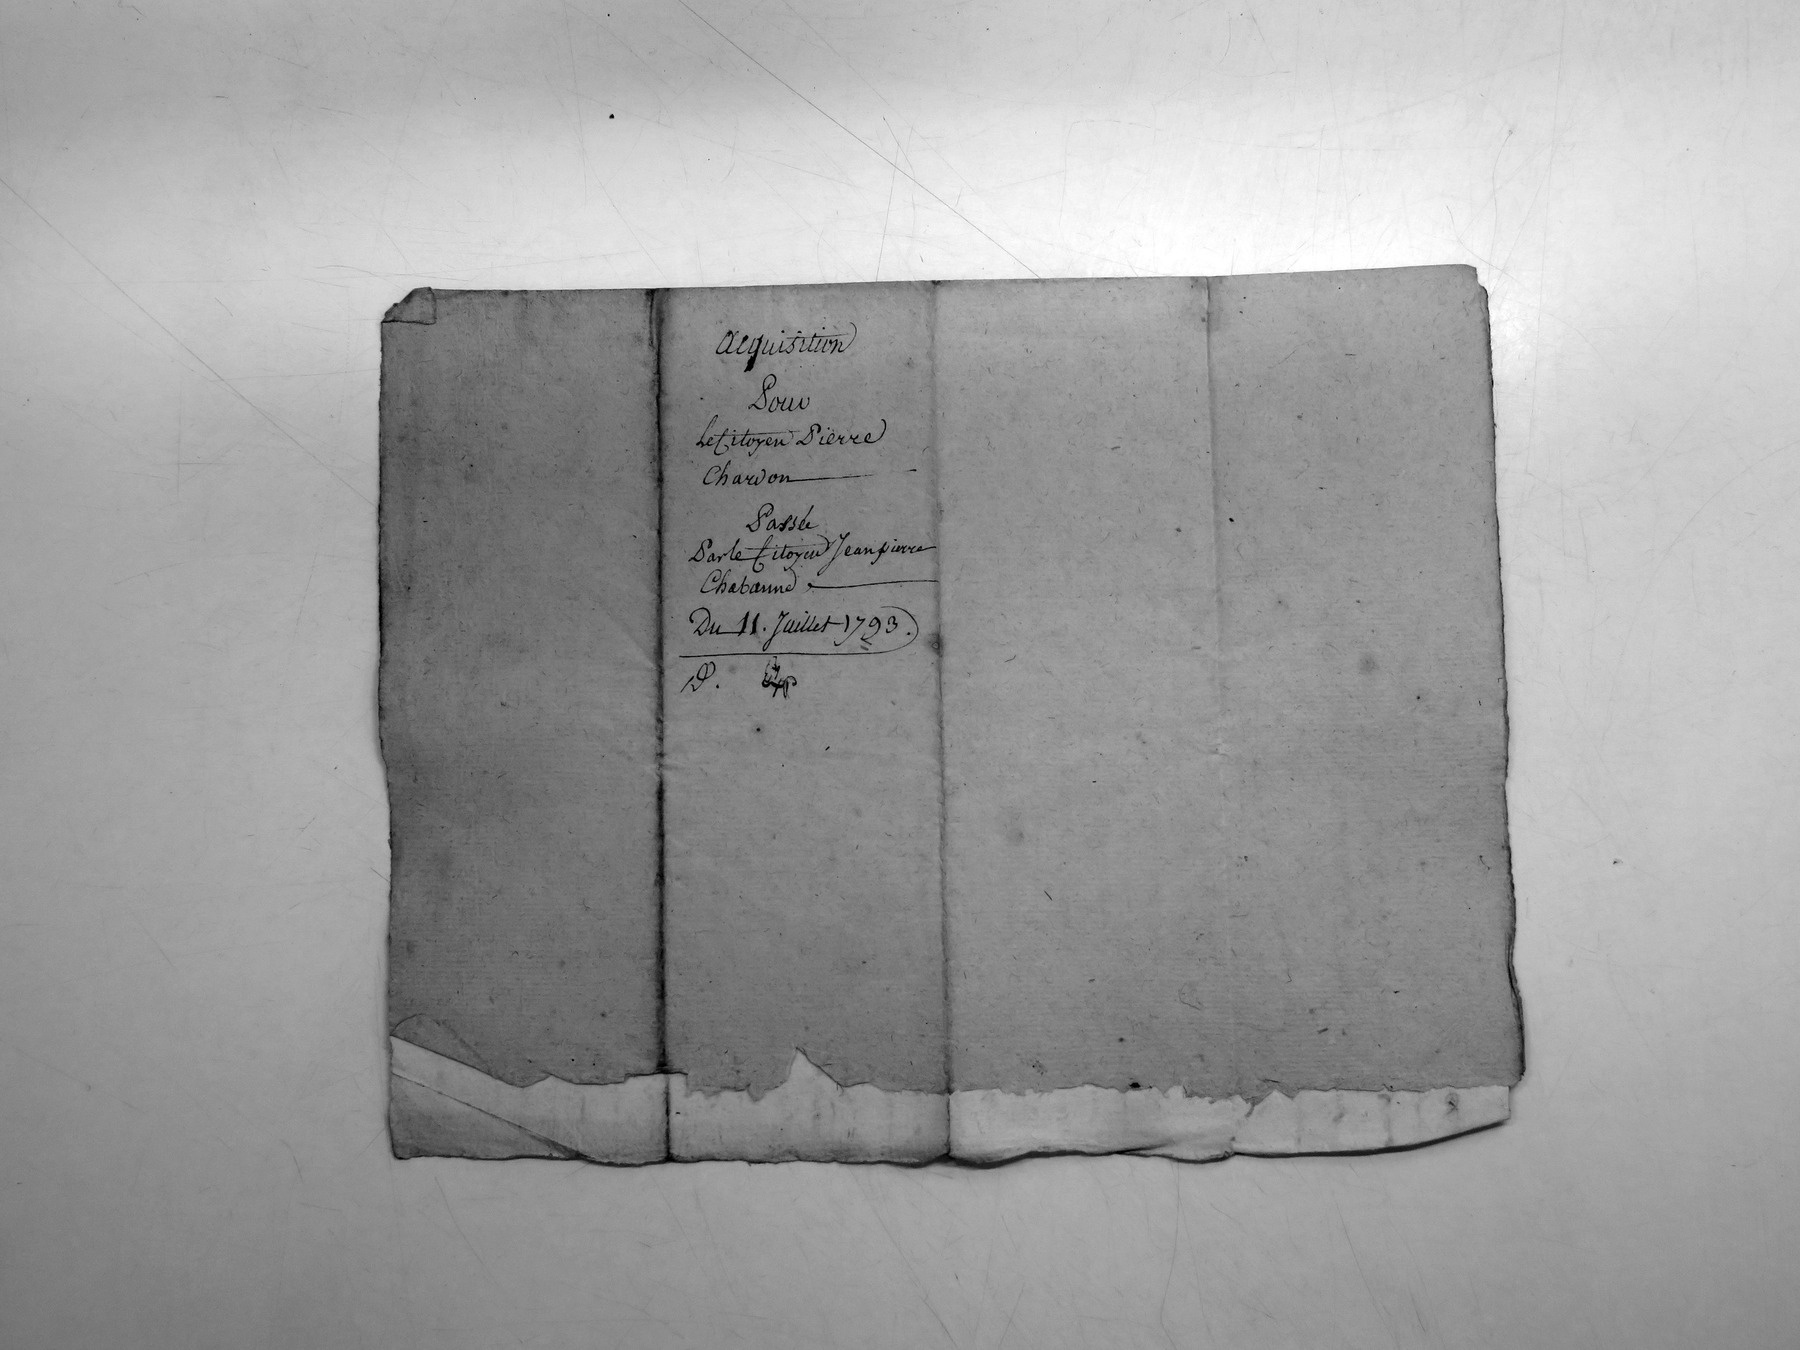 Acquisition
Pour
Le Citoyen Pierre
Chardon
Passée
Par le Citoyen Jean pierre
Chabanne
Du 11. Juillet 1793.